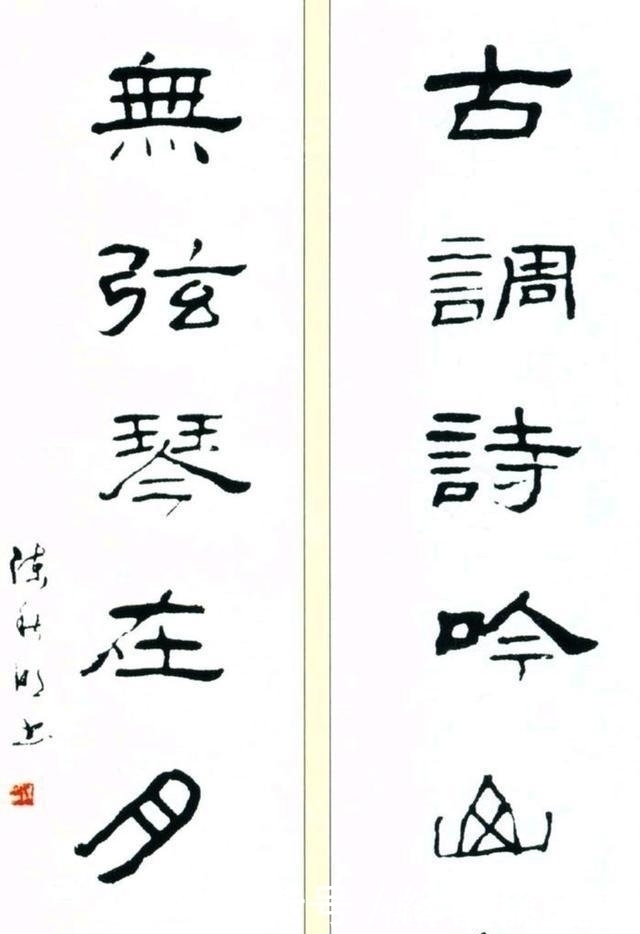 古調詩吟山
無弦琴在月
陳秋明書